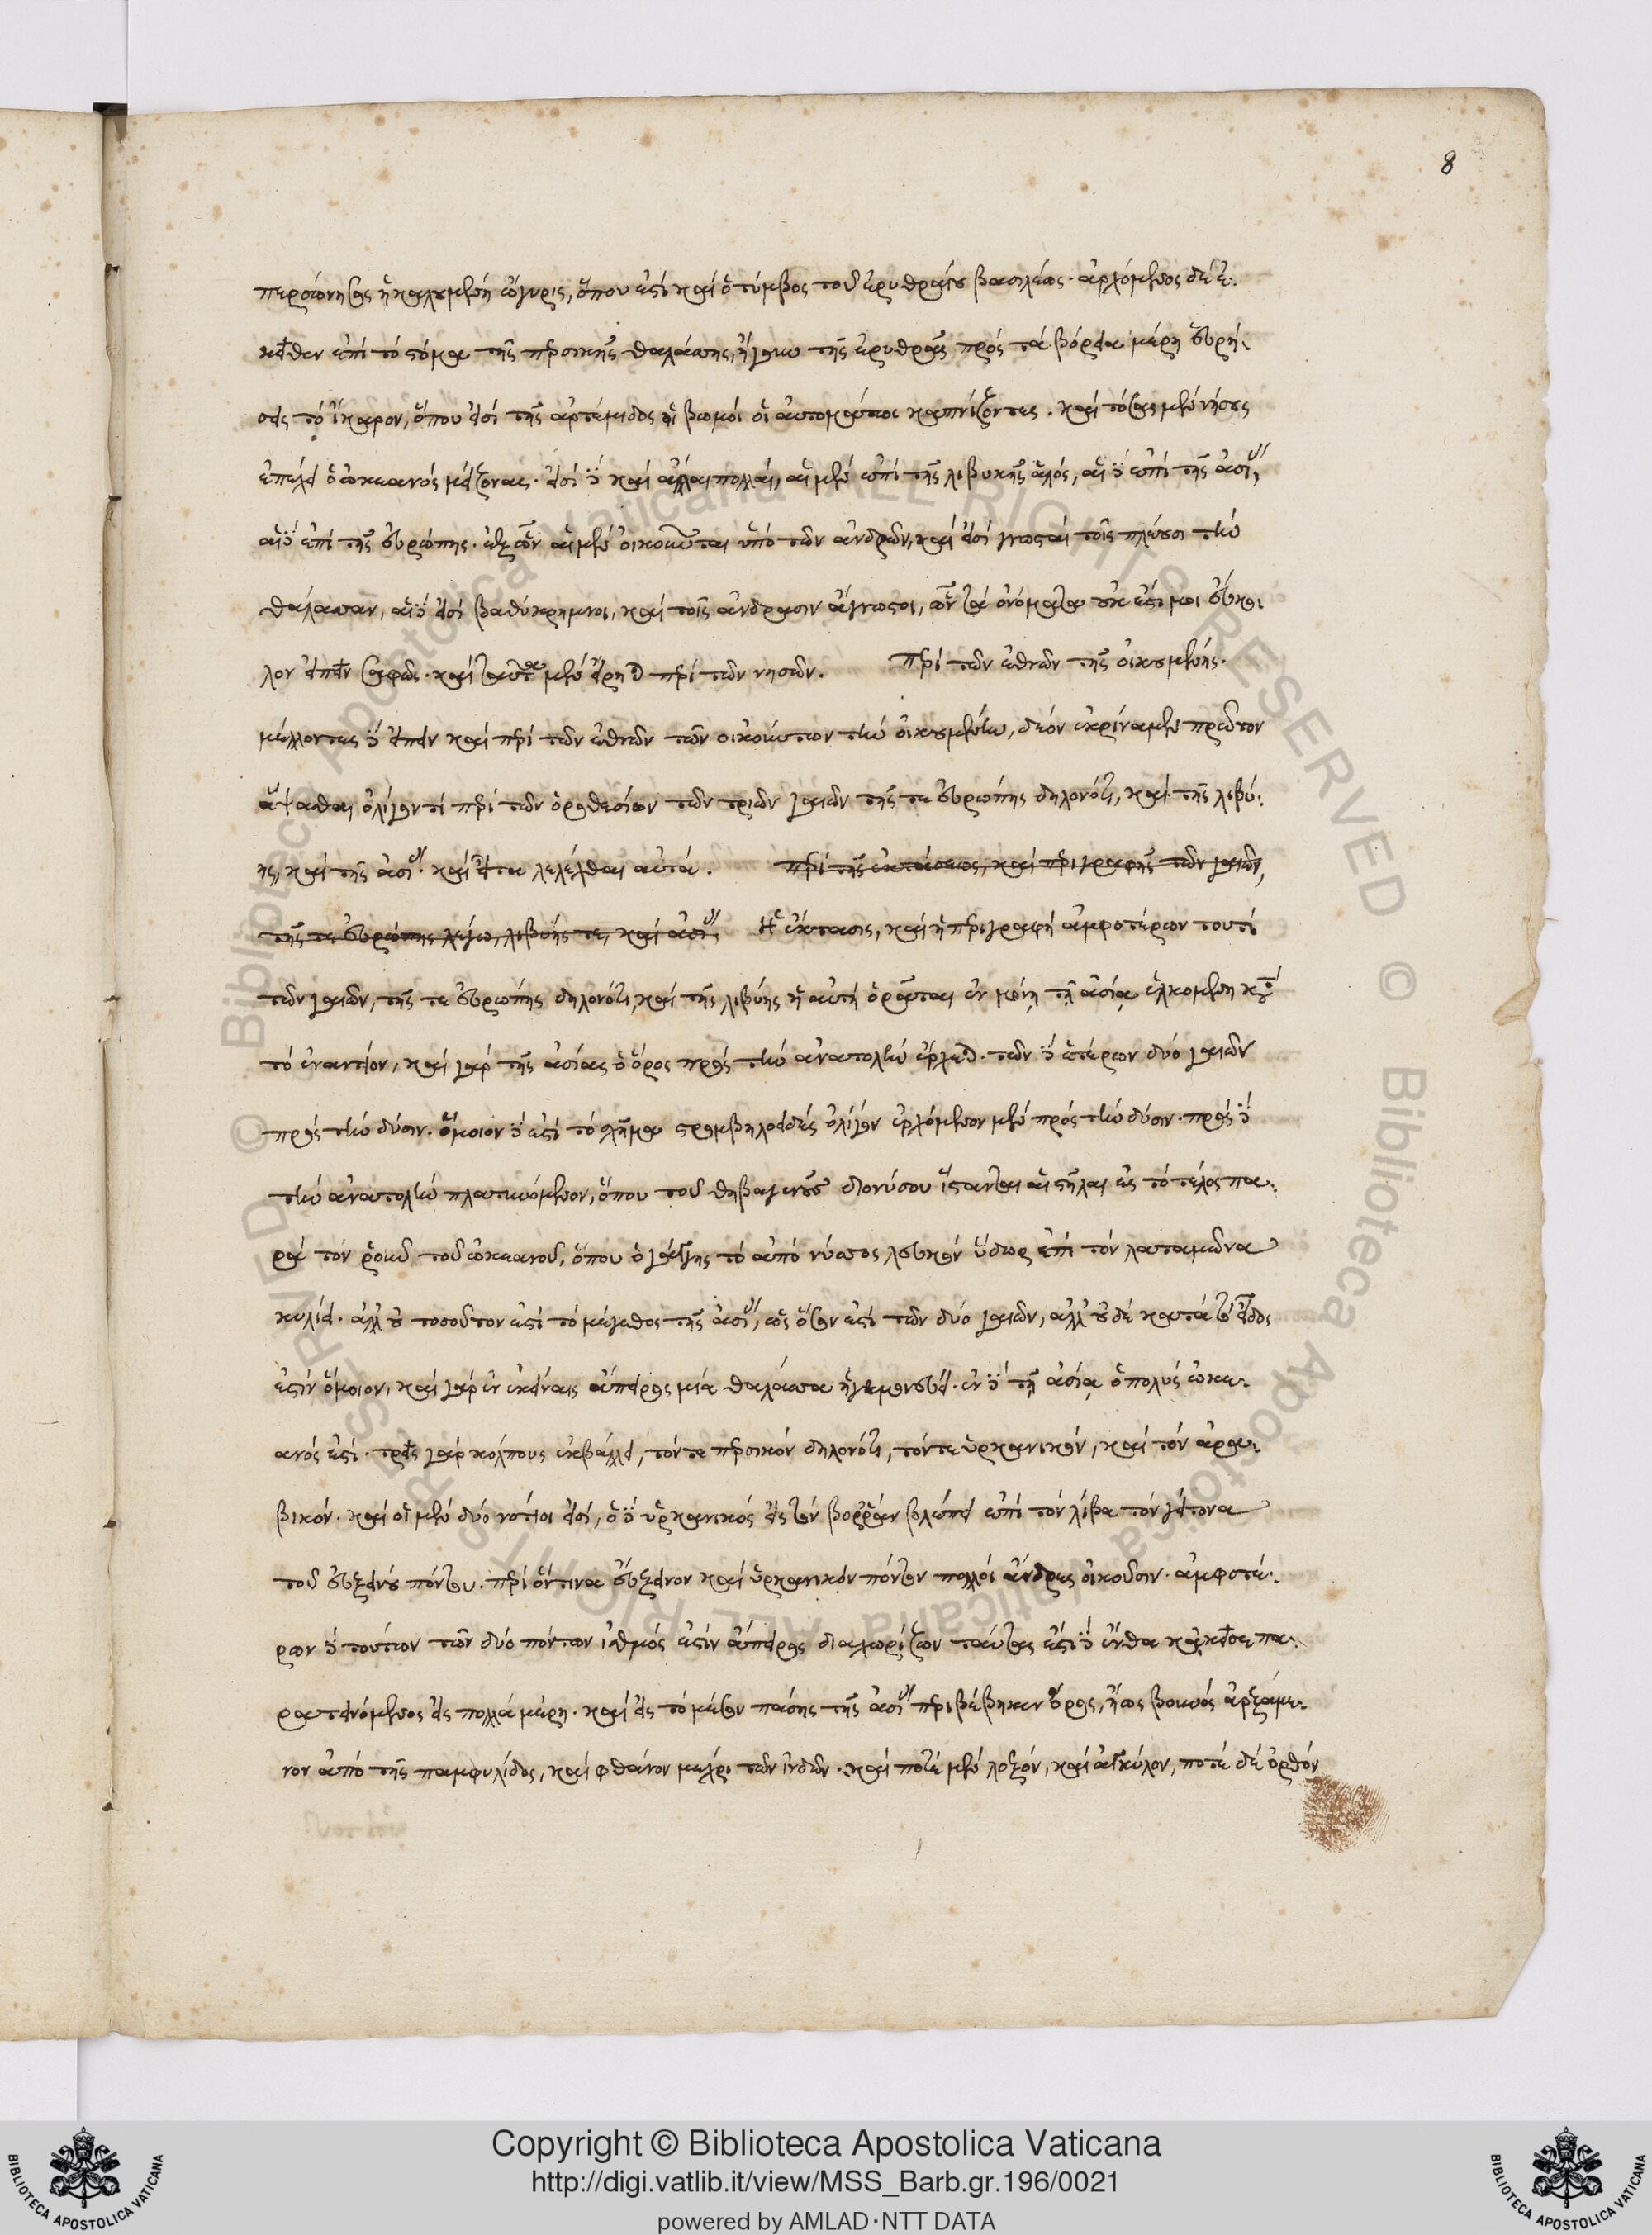 8
περσόνησος ἡ καλουμένη ὤγυρις, ὅπου ἐστὶ καὶ ὁ τύμβος τοῦ ἐρυθραίου βασιλέως. ἀρχόμενος δὲ ἐ-
κεῖθεν ἐπὶ τὸ στόμα τῆς περσικῆς θαλάσσης, ἤγουν τῆς ἐρυθρᾶς πρὸς τὰ βόρεια μέρη εὑρή-
σεις τὸ ἴκαρον, ὅπου εἰσὶ τῆς ἀρτέμιδος οἱ βωμοὶ οἱ αὐτομάτως καπνίζοντες. καὶ τόσας μὲν νήσους
ἐπέχει ὁ ὠκεανὸς μείζονας. εἰσὶ δὲ καὶ ἄλλαι πολλαὶ, αἱ μὲν ἐπὶ τῆς λιβυκῆς ἁλός, αἱ δὲ ἐπὶ τῆς ἀσίας,
αἱ δὲ ἐπὶ τῆς εὐρώπης. ἐξ ὧν αἱ μὲν οἰκοῦνται ὑπὸ τῶν ἀνδρῶν, καὶ εἰσὶ γνωσταὶ τοῖς πλέουσι τὴν
θάλασσαν, αἱ δὲ εἰσὶ βαθύκρημνοι, καὶ τοῖς ἀνδράσιν ἄγνωστοι, ὧν τὰ ὀνόματα οὐκ ἔστι μοι εὔκο-
λον εἰπεῖν σαφῶς. καὶ ταῦτα μὲν εἴρηται περὶ τῶν νησῶν. Περὶ τῶν ἐθνῶν τῆς οἰκουμένης.
μέλλοντες δὲ εἰπεῖν καὶ περὶ τῶν ἐθνῶν τῶν οἰκούντων τὴν οἰκουμένην, δέον ἐκρίναμεν πρῶτον
ἅψασθαι ὀλίγον τί περὶ τῶν ὁροθεσίων τῶν τριῶν γαιῶν τῆς τε εὐρώπης δηλονότι, καὶ τῆς λιβύ-
ης, καὶ τῆς ἀσίας. καὶ εἶτα λελέχθαι αὐτά. περὶ τῆς ἐκτάσεως, καὶ περιγραφῆς τῶν γαιῶν,
τῆς τε εὐρώπης λέγω, λιβύης τε, καὶ ἀσίας. Ἡ ἔκτασις, καὶ ἡ περιγραφὴ ἀμφοτέρων τουτὶ
τῶν γαιῶν, τῆς τε εὐρώπης δηλονότι, καὶ τῆς λιβύης ἡ αὐτὴ ὁρᾶται ἐν μόνῃ τῇ ἀσίᾳ ἑλκομένη κατὰ
τὸ ἐναντίον, καὶ γὰρ τῆς ἀσίας ὁ ὅρος πρὸς τὴν ἀνατολὴν ἔρχεται. τῶν δὲ ἑτέρων δύο γαιῶν
πρὸς τὴν δύσιν. ὅμοιον δὲ ἐστὶ τὸ σχῆμα στρομβηλοειδὲς ὀλίγον ἐρχόμενον μὲν πρὸς τὴν δύσιν. πρὸς δὲ
τὴν ἀνατολὴν πλατυνόμενον, ὅπου τοῦ θηβαγενοῦς διονύσου ἵστανται αἱ στῆλαι εἰς τὸ τέλος πα-
ρὰ τὸν ῥοῦν τοῦ ὠκεανοῦ, ὅπου ὁ γάγγης τὸ ἀπὸ νύσσος λευκὸν ὕδωρ ἐπὶ τὸν λαταμῶνα
κυλίει. ἀλλ' οὐ τοσοῦτον ἐστὶ τὸ μέγεθος τῆς ἀσίας, ὡς ὅσον ἐστὶ τῶν δύο γαιῶν, ἀλλ' οὐδὲ κατὰ τὸ εἶδος
ἐστὶν ὅμοιον, καὶ γὰρ ἐν ἐκείναις ἄπειρος μία θάλασσα ἡγεμονεύει. ἐν δὲ τῇ ἀσίᾳ ὁ πολὺς ὠκε-
ανός ἐστι. τρεῖς γὰρ κόλπους ἐκβάλλει, τόν τε περσικὸν δηλονότι, τόν τε ὑρκανικὸν, καὶ τὸν ἀρα-
βικόν. καὶ οἱ μὲν δύο νότιοι εἰσὶ, ὁ δὲ ὑρκανικὸς εἰς τὸν βορρᾶν βλέπει ἐπὶ τὸν λίβα τὸν γείτονα
τοῦ εὐξείνου πόντου. περὶ ὅντινα εὔξεινον καὶ ὑρκανικὸν πόντον πολλοὶ ἄνδρες οἰκοῦσιν. ἀμφοτέ-
ρων δὲ τούτων τῶν δύο πόντων ἰσθμὸς ἐστὶν ἄπειρος διαχωρίζων ταύτας ἐστὶ δὲ ἔνθα κἀκεῖσε πα-
ρατεινόμενος εἰς πολλὰ μέρη. καὶ εἰς τὸ μέσον πάσης τῆς ἀσίας περιβέβηκεν ὄρος, ἤως βουνὸς ἀρξάμε-
νον ἀπὸ τῆς παμφυλίδος, καὶ φθάνον μέχρι τῶν ἰνδῶν. καὶ ποτὲ μὲν λοξόν, καὶ ἀγκύλον, ποτὲ δὲ ὀρθόν
Copyright © Biblioteca Apostolica Vaticana
http://digi.vatlib.it/view/MSS_Barb.gr.196/0021
powered by AMLAD·NTT DATA